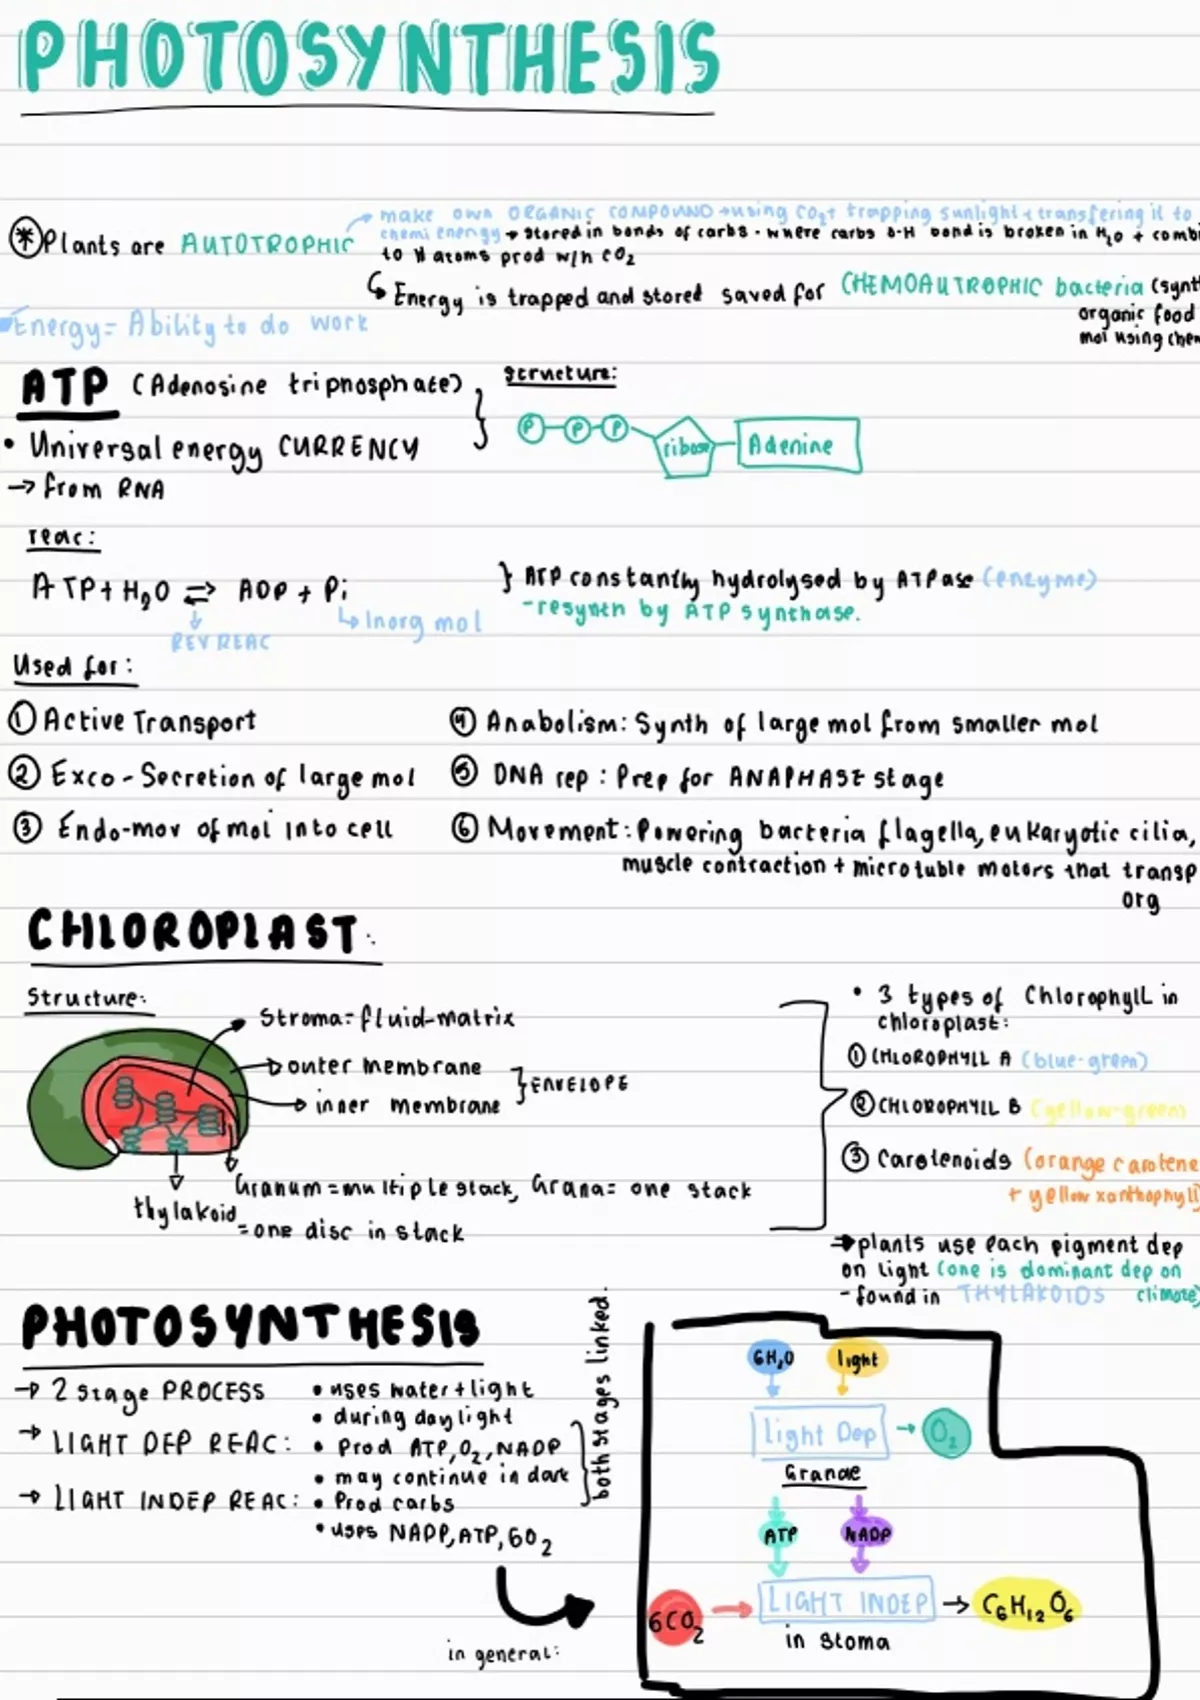 PHOTOSYNTHESIS
make own ORGANIC COMPOUND → using CO2 + trapping sunlight + transfering it to
⊛ Plants are AUTOTROPHIC
chemi energy → stored in bonds of carbs · where carbs O-H bond is broken in H2O + combi
to H atoms prod w/n CO2
↳ Energy is trapped and stored saved for CHEMOAUTROPHIC bacteria (synt
organic food
mol using chem
Energy = Ability to do work
ATP (Adenosine triphosphate)
structure:
P P P ribose Adenine
• Universal energy CURRENCY
→ from RNA
reac:
ATP + H2O ⇌ ADP + Pi
↳ Inorg mol
REV REAC
} ATP constantly hydrolysed by ATPase (enzyme)
- resynth by ATP synthase.
Used for:
① Active Transport
② Exco - Secretion of large mol
③ Endo-mov of mol into cell
④ Anabolism: Synth of large mol from smaller mol
⑤ DNA rep: Prep for ANAPHASE stage
⑥ Movement: Powering bacteria flagella, eukaryotic cilia,
muscle contraction + microtuble motors that transp
org
CHLOROPLAST:
Structure:
Stroma = fluid-matrix
outer membrane
inner membrane
} ENVELOPE
Granum = multiple stack, Grana = one stack
thylakoid = one disc in stack
• 3 types of Chlorophyll in
chloroplast:
① CHLOROPHYLL A (blue-green)
② CHLOROPHYLL B (yellow-green)
③ Carotenoids (orange carotene
+ yellow xanthophyll)
→ plants use each pigment dep
on light (one is dominant dep on
climate)
- found in THYLAKOIDS
PHOTOSYNTHESIS
→ 2 stage PROCESS
→ LIGHT DEP REAC:
→ LIGHT INDEP REAC:
• uses water + light
• during daylight
• Prod ATP, O2, NADP
• may continue in dark
• Prod carbs
• uses NADP, ATP, 6O2
both stages linked.
in general:
6H2O
light
Light Dep → O2
Granae
ATP
NADP
6CO2 → LIGHT INDEP → C6H12O6
in stoma